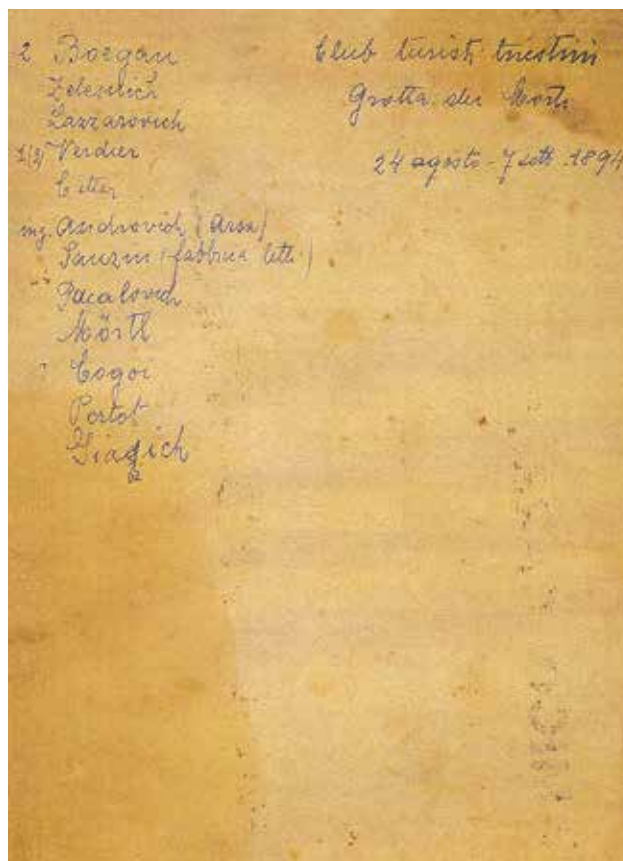 2 Boegan
Zelesnich
Lazzarovich
1(2) Verdier
ing. Androvich (Arsa)
(fabbrica
Pacalovich
Mörtl
Cogoi
Pertot
Giagich
Club turisti triestini
Grotta dei Morti
24 agosto - 7 sett. 1894